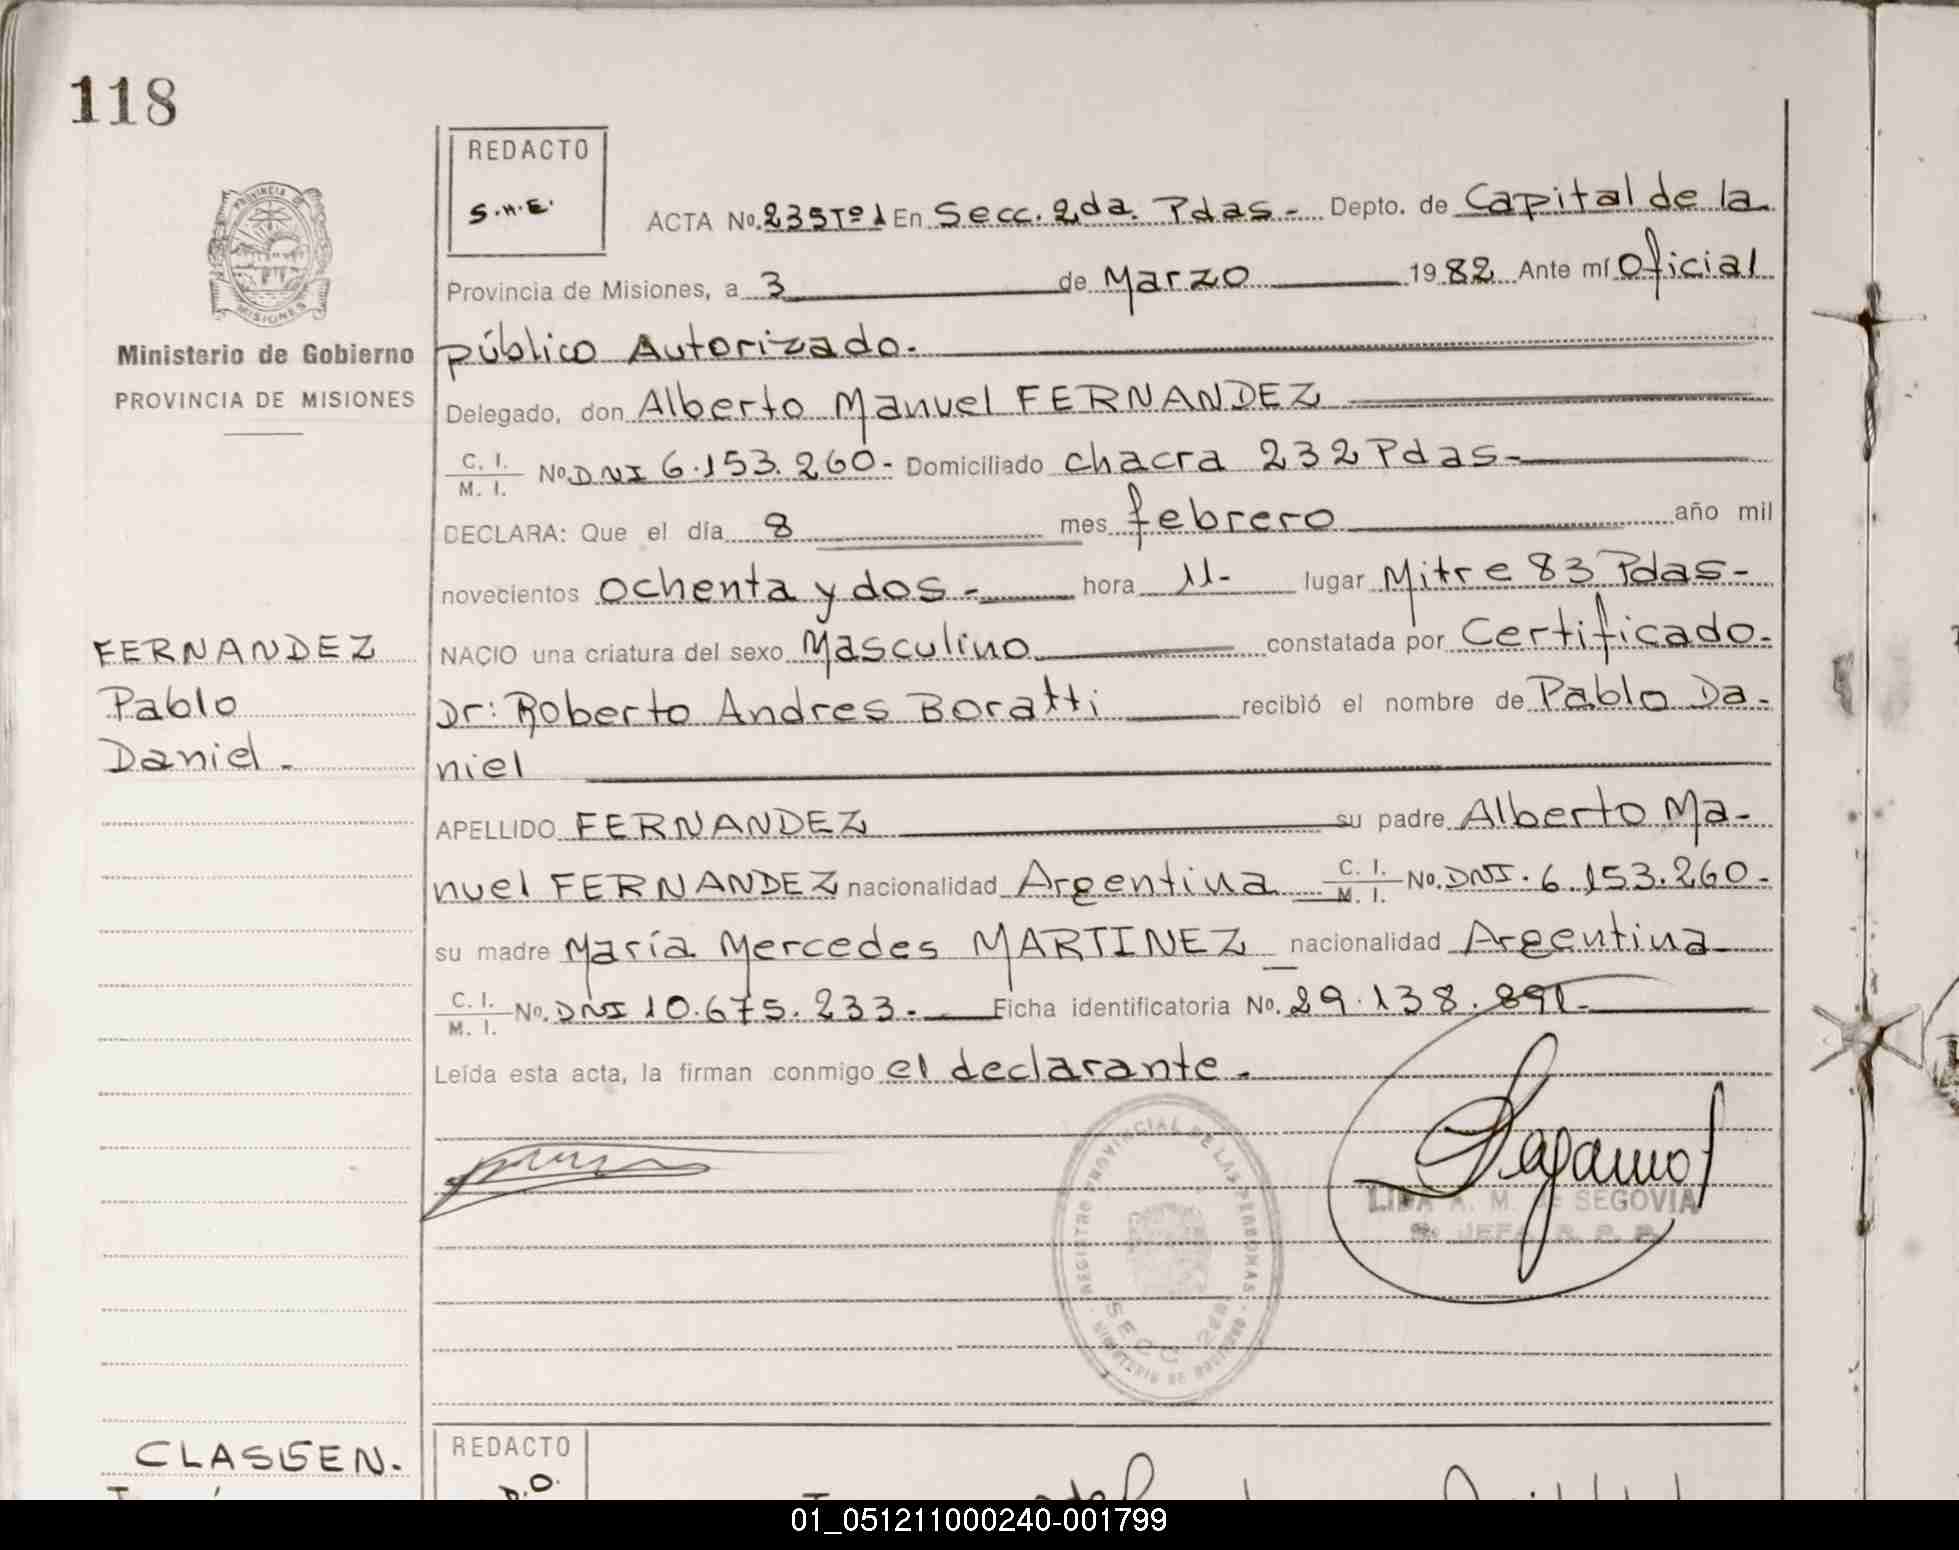 118
REDACTO
S.H.E.
PROVINCIA DE
MISIONES
Ministerio de Gobierno
PROVINCIA DE MISIONES
ACTA No. 235 Tº 1 En Secc. 2da. Pdas - Depto. de Capital de la
Provincia de Misiones, a 3 de Marzo 1982 Ante mí Oficial
público Autorizado.
Delegado, don Alberto Manuel FERNANDEZ
C. I. / M. I. No. DNI 6.153.260- Domiciliado chacra 232 Pdas-
DECLARA: Que el día 8 mes febrero año mil
novecientos ochenta y dos - hora 11- lugar Mitre 83 Pdas-
FERNANDEZ
Pablo
Daniel -
NACIO una criatura del sexo Masculino constatada por Certificado-
Dr: Roberto Andres Boratti recibió el nombre de Pablo Da-
niel
APELLIDO FERNANDEZ su padre Alberto Ma-
nuel FERNANDEZ nacionalidad Argentina C. I. / M. I. No. DNI. 6.153.260-
su madre María Mercedes MARTINEZ nacionalidad Argentina
C. I. / M. I. No. DNI 10.675.233.- Ficha identificatoria No. 29.138.891-
Leída esta acta, la firman conmigo el declarante -
REGISTRO PROVINCIAL DE LAS PERSONAS
SECC.
LIDA A. M. de SEGOVIA
JEFA R. P. P.
CLASSEN.
REDACTO
01_051211000240-001799